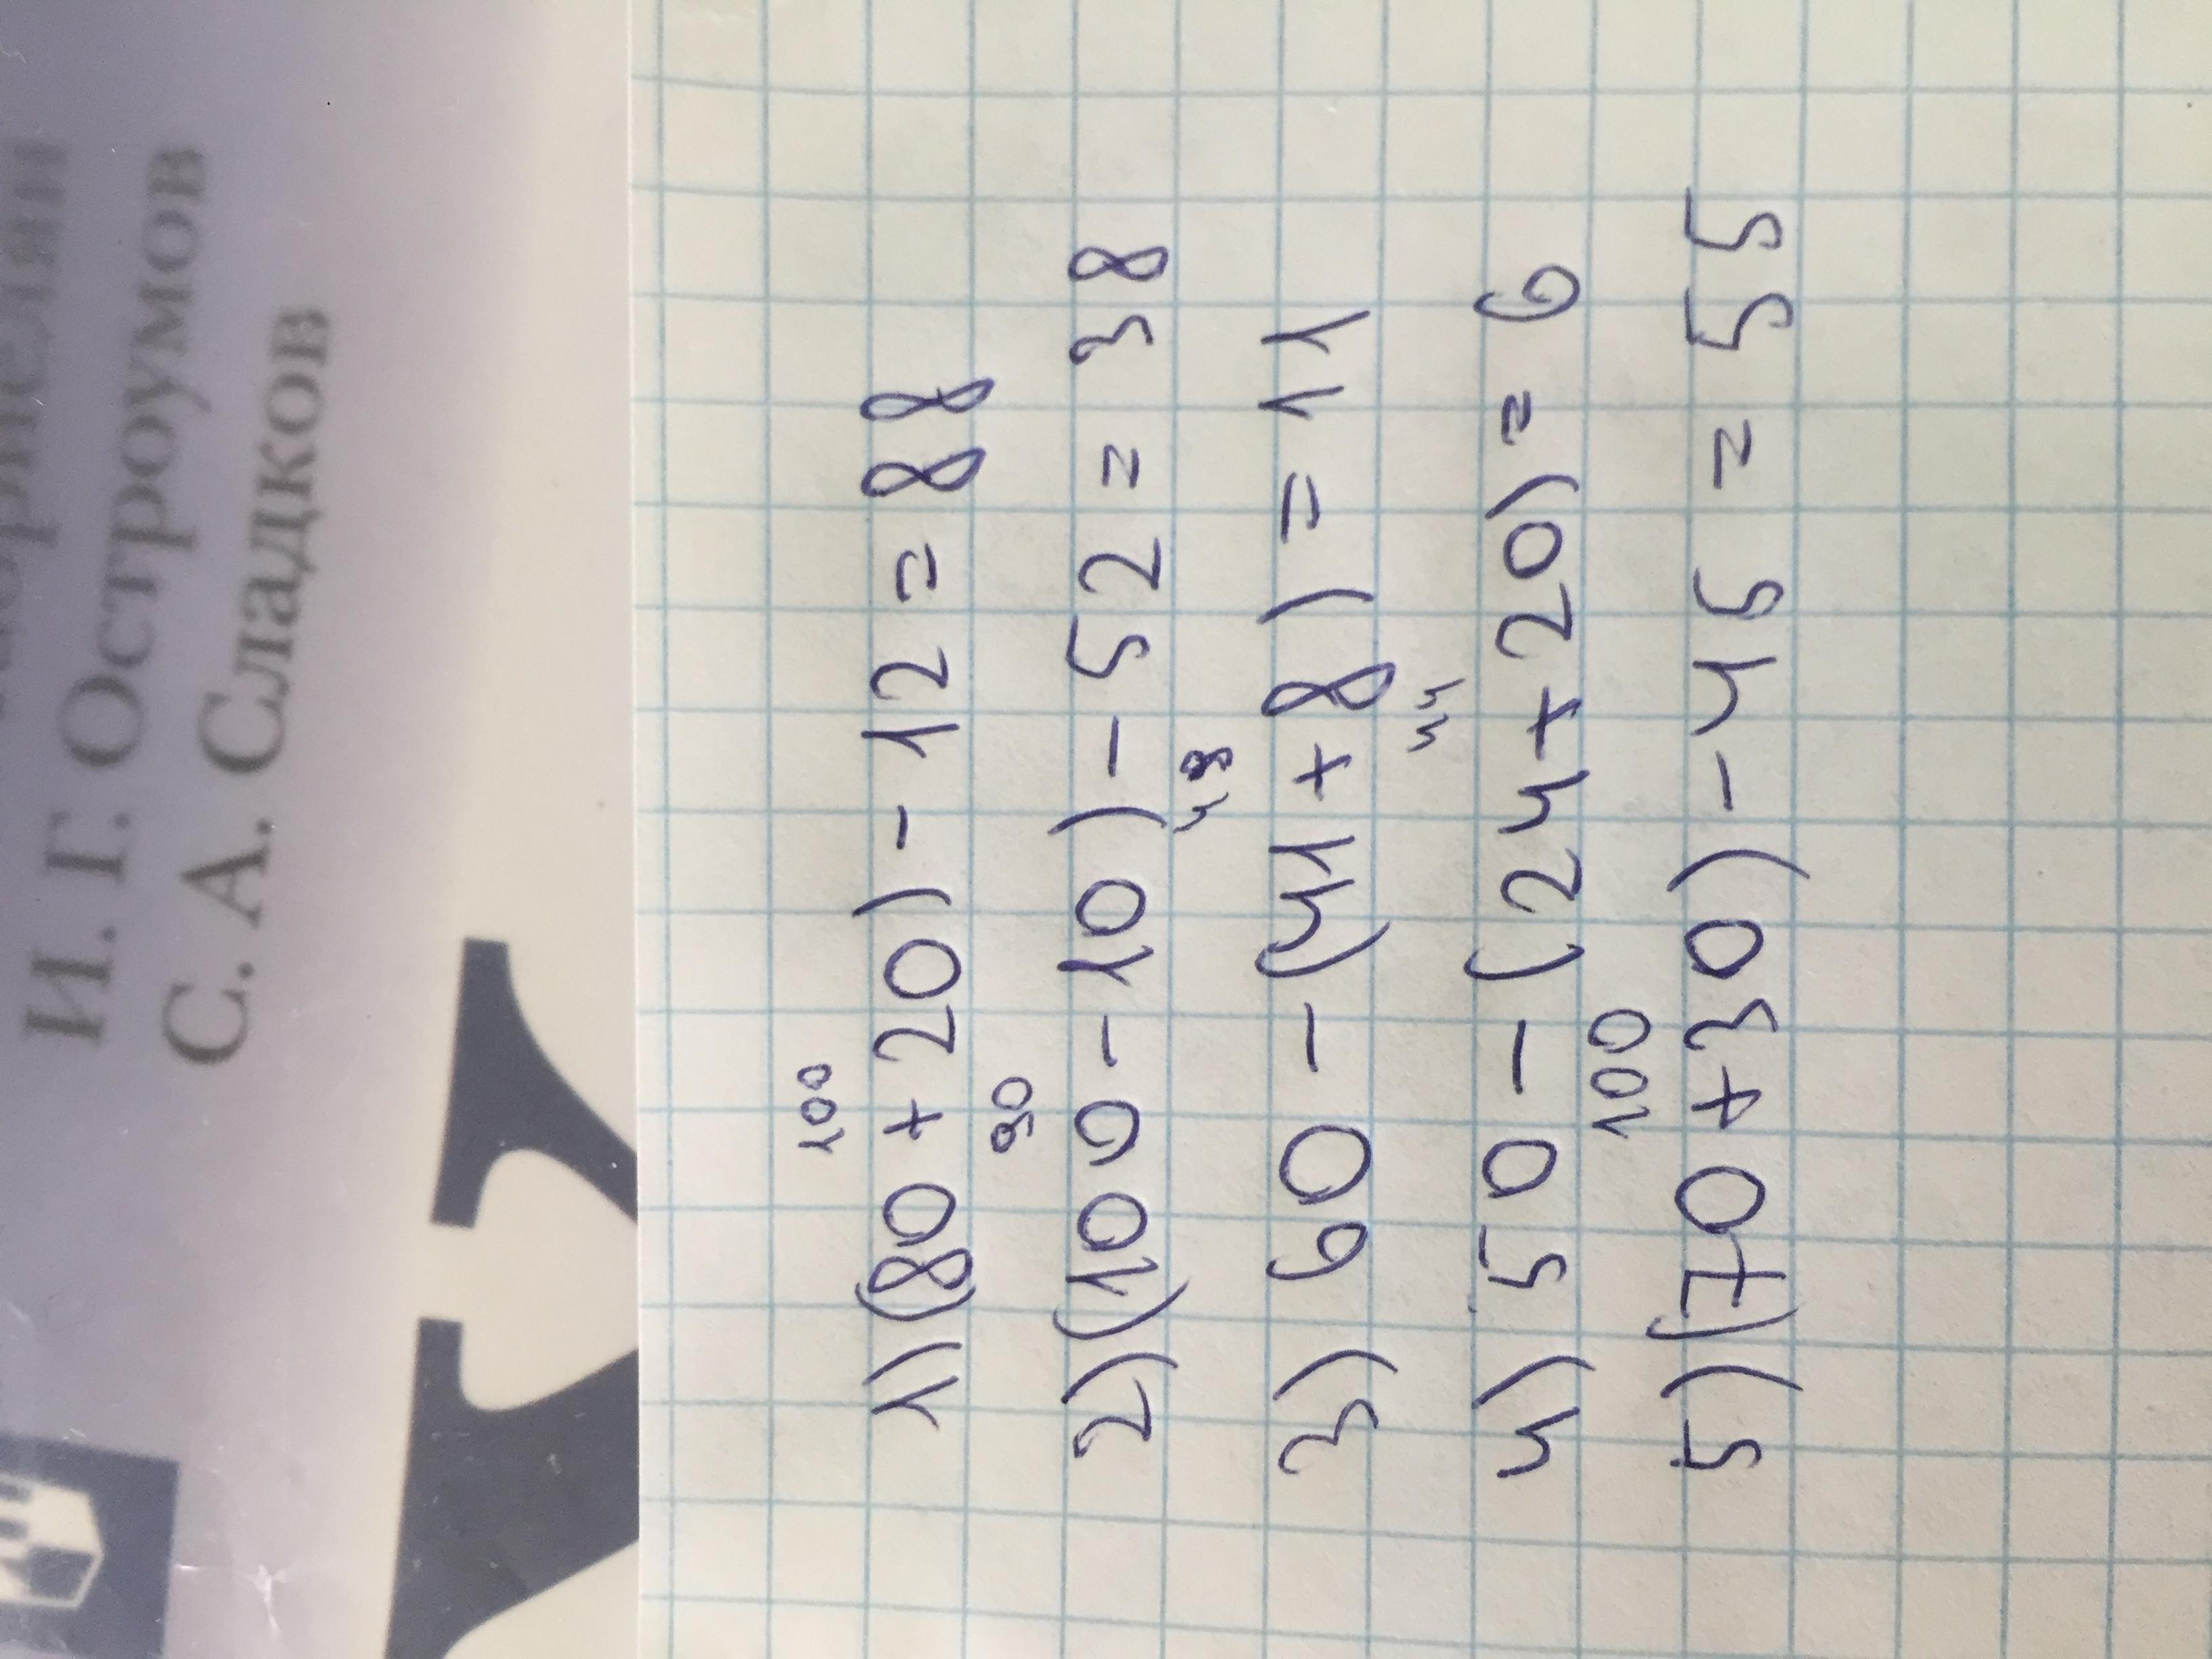 И. Г. Остроумов
С. А. Сладков
100
1) (80 + 20) - 12 = 88
90
2) (100 - 10) - 52 = 38
48
3) 60 - (41 + 8) = 11
44
4) 50 - (24 + 20) = 6
100
5) (70 + 30) - 45 = 55